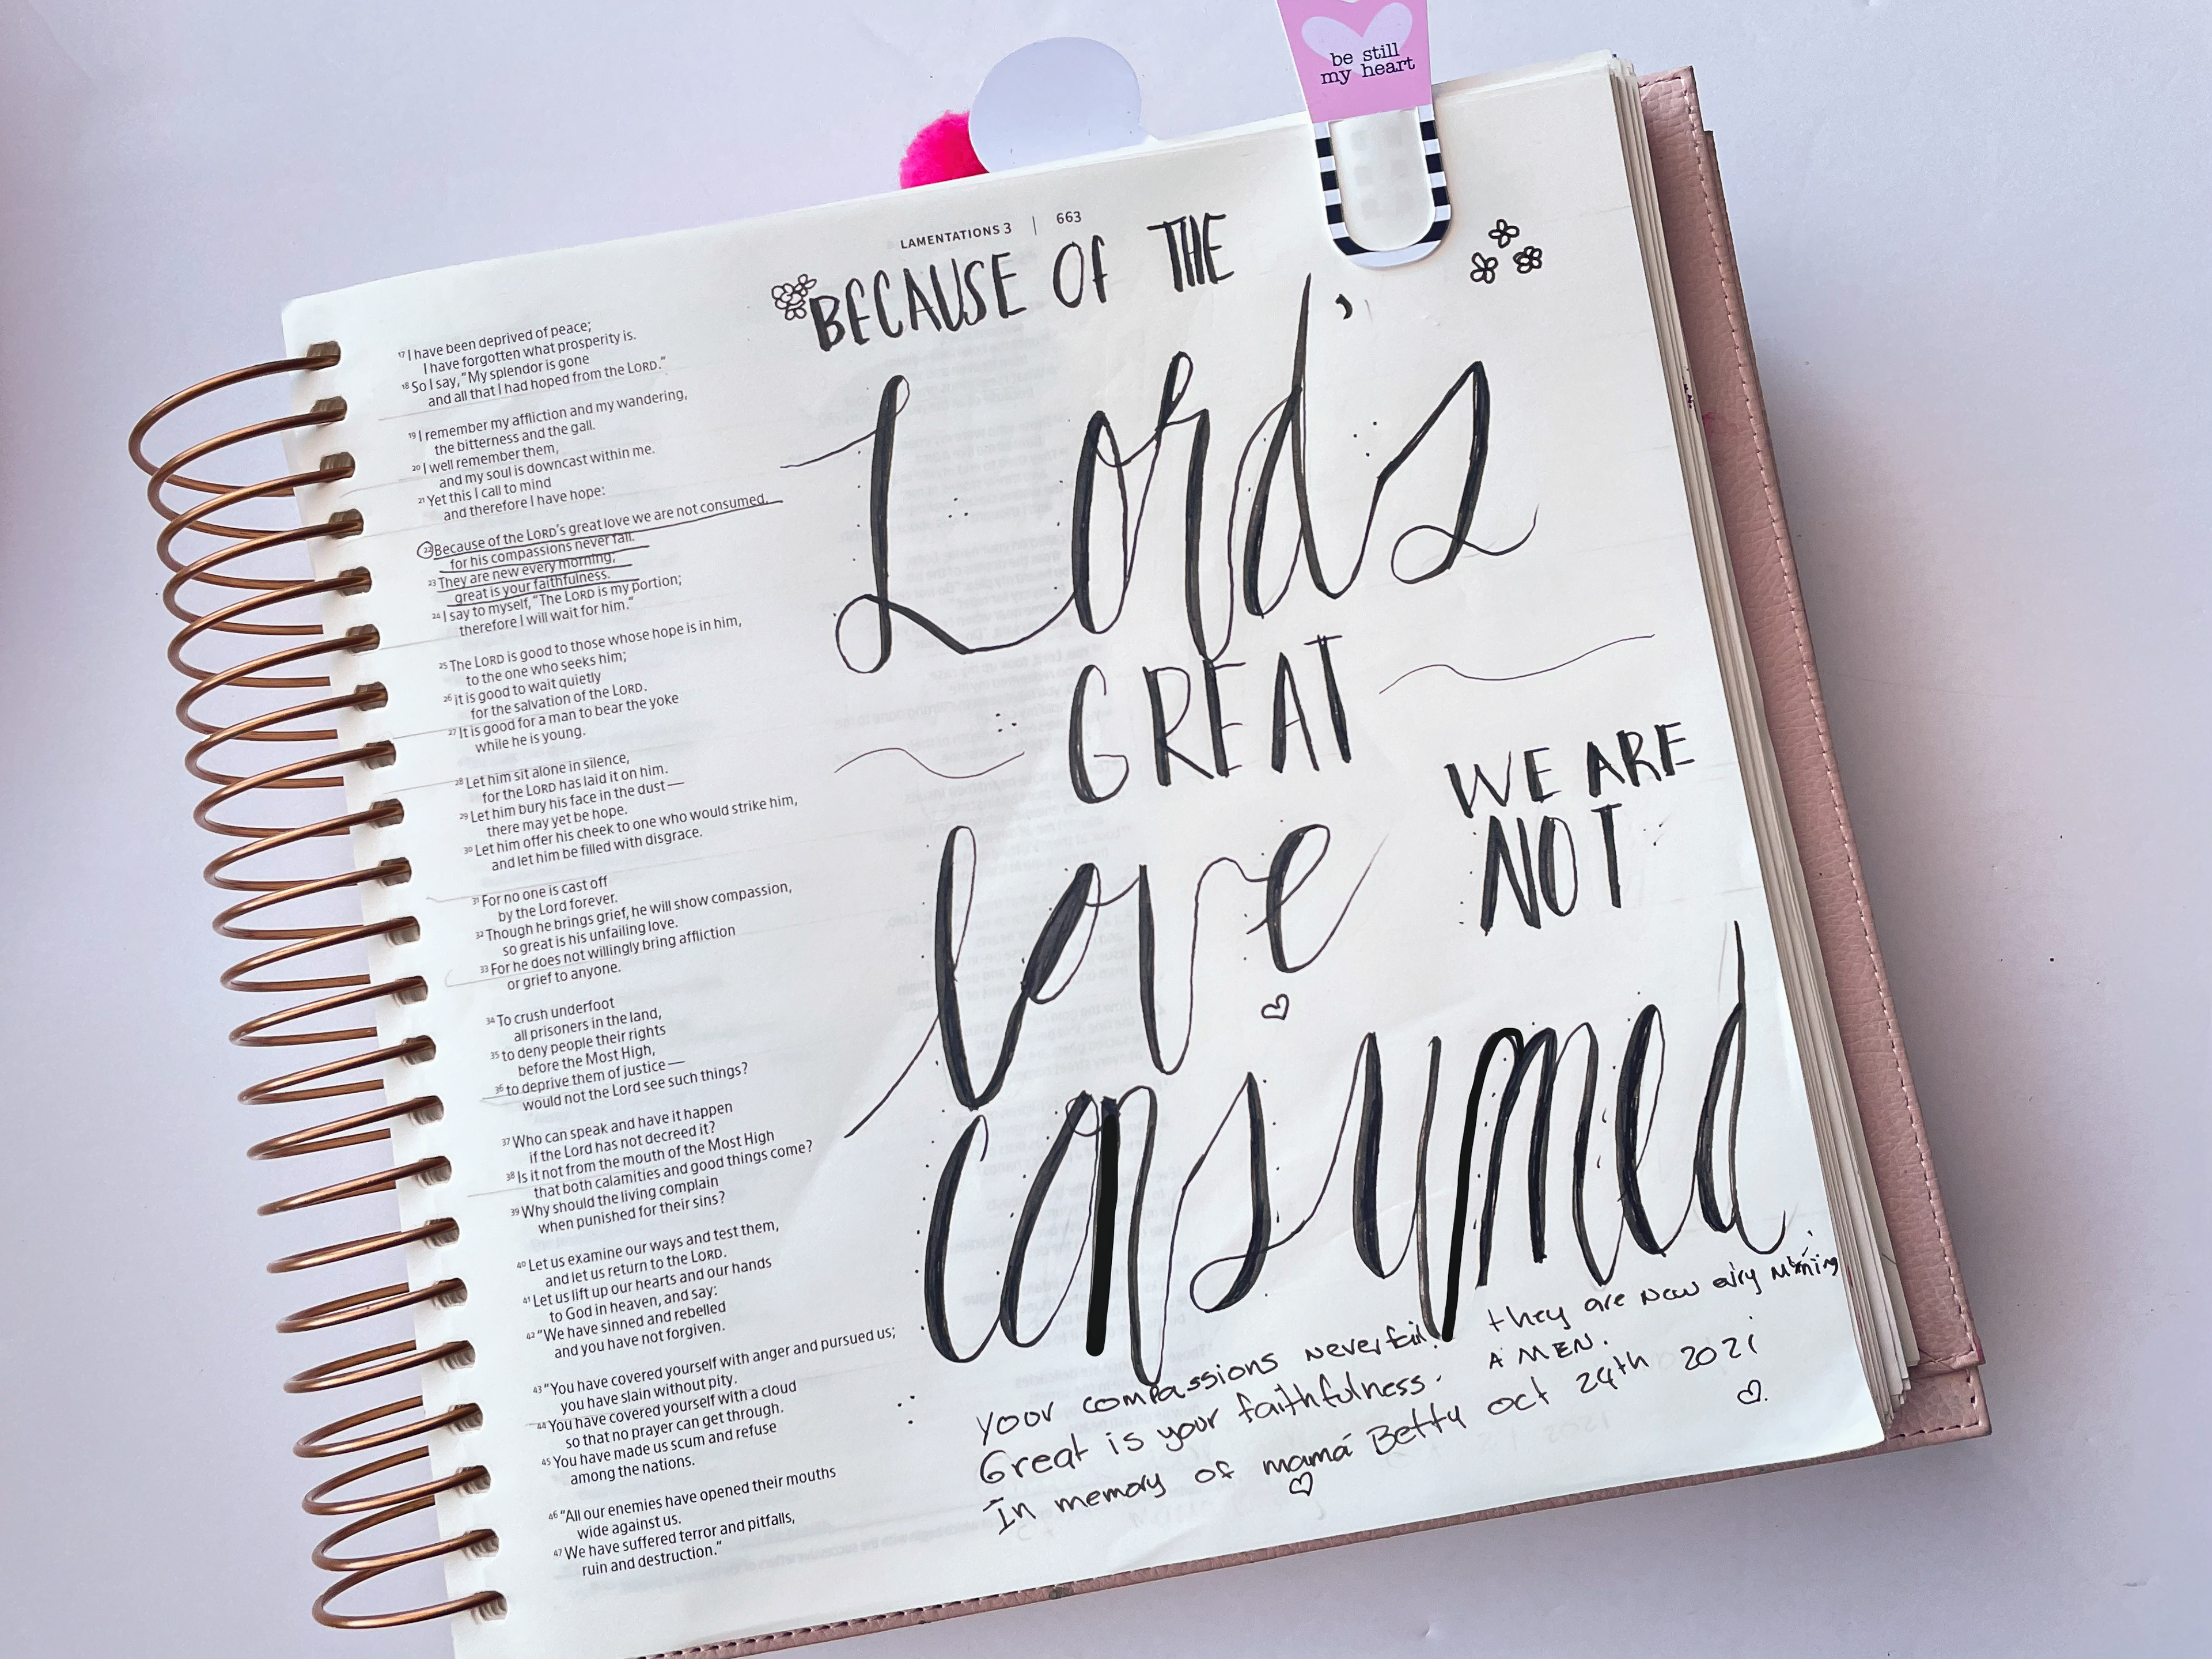 be still
my heart
LAMENTATIONS 3 | 663
17 I have been deprived of peace;
I have forgotten what prosperity is.
18 So I say, “My splendor is gone
and all that I had hoped from the LORD.”
19 I remember my affliction and my wandering,
the bitterness and the gall.
20 I well remember them,
and my soul is downcast within me.
21 Yet this I call to mind
and therefore I have hope:
22 Because of the LORD’s great love we are not consumed,
for his compassions never fail.
23 They are new every morning;
great is your faithfulness.
24 I say to myself, “The LORD is my portion;
therefore I will wait for him.”
25 The LORD is good to those whose hope is in him,
to the one who seeks him;
26 it is good to wait quietly
for the salvation of the LORD.
27 It is good for a man to bear the yoke
while he is young.
28 Let him sit alone in silence,
for the LORD has laid it on him.
29 Let him bury his face in the dust—
there may yet be hope.
30 Let him offer his cheek to one who would strike him,
and let him be filled with disgrace.
31 For no one is cast off
by the Lord forever.
32 Though he brings grief, he will show compassion,
so great is his unfailing love.
33 For he does not willingly bring affliction
or grief to anyone.
34 To crush underfoot
all prisoners in the land,
35 to deny people their rights
before the Most High,
36 to deprive them of justice—
would not the Lord see such things?
37 Who can speak and have it happen
if the Lord has not decreed it?
38 Is it not from the mouth of the Most High
that both calamities and good things come?
39 Why should the living complain
when punished for their sins?
40 Let us examine our ways and test them,
and let us return to the LORD.
41 Let us lift up our hearts and our hands
to God in heaven, and say:
42 “We have sinned and rebelled
and you have not forgiven.
43 “You have covered yourself with anger and pursued us;
you have slain without pity.
44 You have covered yourself with a cloud
so that no prayer can get through.
45 You have made us scum and refuse
among the nations.
46 “All our enemies have opened their mouths
wide against us.
47 We have suffered terror and pitfalls,
ruin and destruction.”
BECAUSE OF THE
Lord's
GREAT
love
WE ARE
NOT
consumed
your compassions never fail. they are new every morning
Great is your faithfulness. AMEN.
In memory of mamá Betty oct 24th 2021